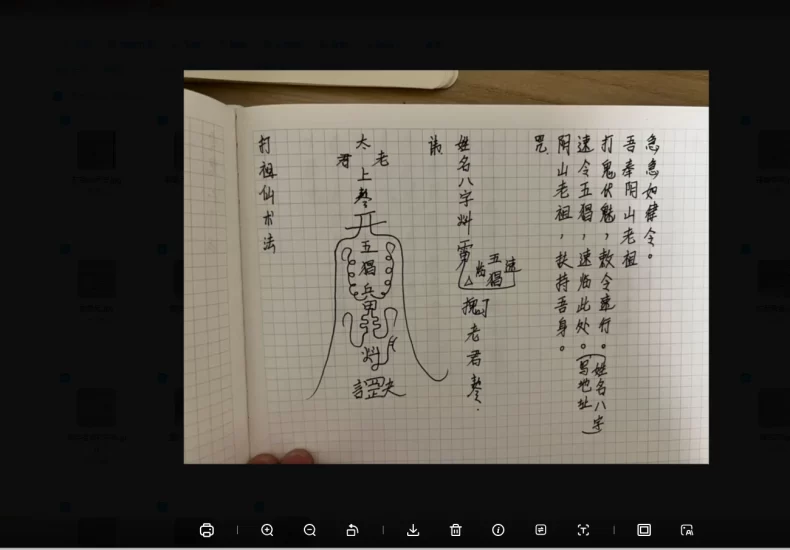 急急如律令。
吾奉阴山老祖
打鬼伏魅，敕令速行。（姓名八字
速令五猖，速临此处。写地址）
阴山老祖，扶持吾身。
咒
姓名八字
五猖
速
老君
讳
太上
老
君
五猖兵
打祖仙术法